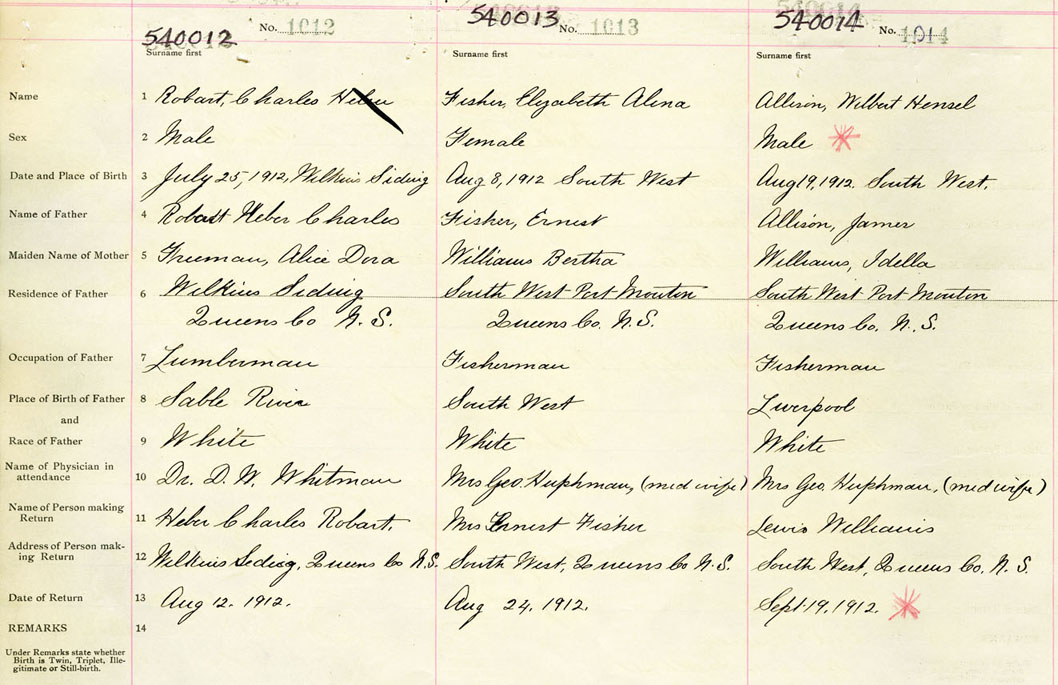 540012 No. 1012 540013 No. 1013 540014 No. 1014
Surname first Surname first Surname first
Name 1 Robart, Charles Heber Fisher, Elyzabeth Alena Allison, Wilbert Hensel
Sex 2 Male Female Male
Date and Place of Birth 3 July 25, 1912, Wilkins Siding Aug 8, 1912 South West Aug 19, 1912. South West.
Name of Father 4 Robart Heber Charles Fisher, Ernest Allison, James
Maiden Name of Mother 5 Freeman, Alice Dora Williams Bertha Williams, Idella
Residence of Father 6 Wilkins Siding South West Port Mouton South West Port Mouton
Queens Co N.S. Queens Co. N.S. Queens Co. N.S.
Occupation of Father 7 Lumberman Fisherman Fisherman
Place of Birth of Father 8 Sable River South West Liverpool
and
Race of Father 9 White White White
Name of Physician in
attendance 10 Dr. D. W. Whitman Mrs Geo. Huphman, (mid wife) Mrs Geo. Huphman, (mid wife)
Name of Person making
Return 11 Heber Charles Robart. Mrs Ernest Fisher Lewis Williams
Address of Person mak-
ing Return 12 Wilkins Siding, Queens Co N.S. South West, Queens Co N.S. South West, Queens Co, N.S.
Date of Return 13 Aug 12. 1912. Aug 24, 1912. Sept. 19. 1912.
REMARKS 14
Under Remarks state whether
Birth is Twin, Triplet, Ille-
gitimate or Still-birth.